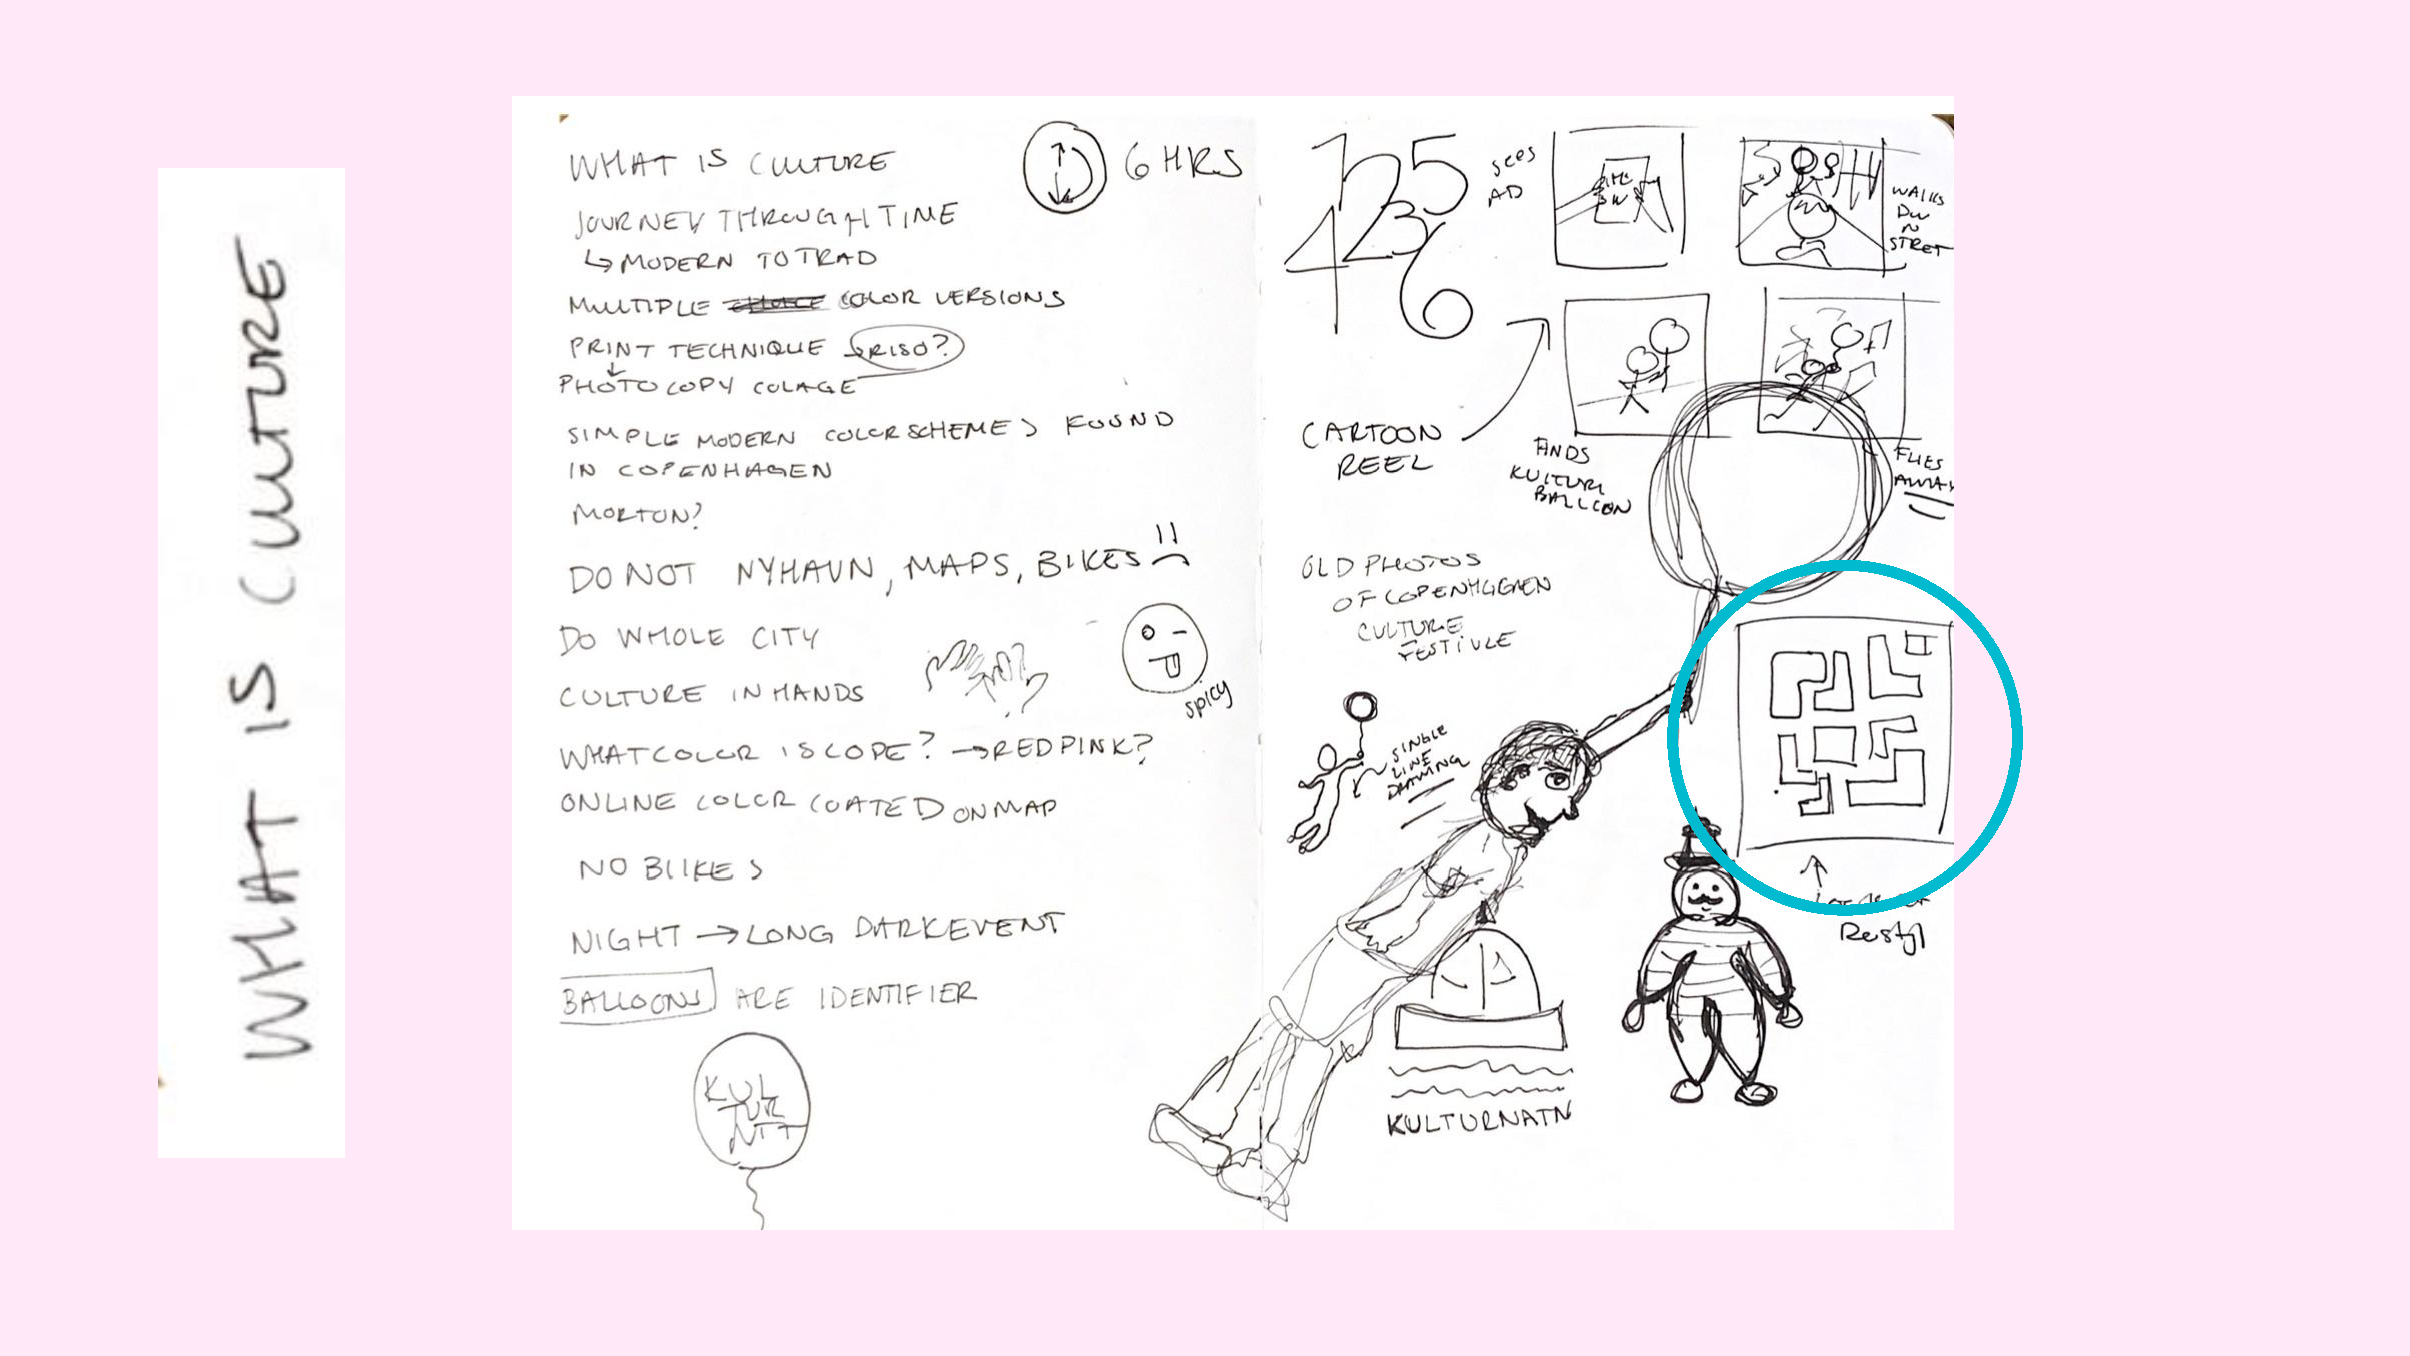 WHAT IS CULTURE
WHAT IS CULTURE
6 HRS
JOURNEY THROUGH TIME
↳ MODERN TO TRAD
MULTIPLE COLOR VERSIONS
PRINT TECHNIQUE RISO?
PHOTOCOPY COLAGE
SIMPLE MODERN COLORSCHEMES FOUND
IN COPENHAGEN
MORTON?
DO NOT NYHAVN, MAPS, BIKES
DO WHOLE CITY
CULTURE IN HANDS
spicy
WHAT COLOR IS COPE? → RED PINK?
ONLINE COLOR COATED ON MAP
NO BIIKES
NIGHT → LONG DARK EVENT
BALLOONS ARE IDENTIFIER
KUL
TUR
NTT
1 2 5
4 3 6
SEES
AD
WALKS
DW
N
STRET
CARTOON
REEL
FINDS
KULTUR
BALLOON
FLIES
AWAY
OLD PHOTOS
OF COPENHAGEN
CULTURE
FESTIVLE
SINGLE
LINE
DRAWING
Restyl
KULTURNATN